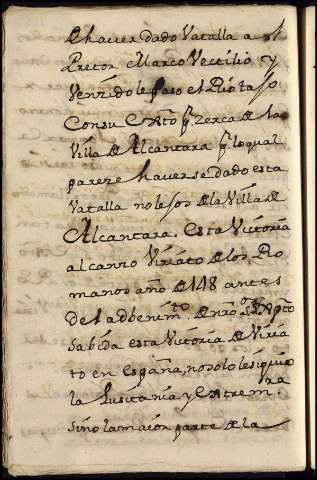 de haver dado Vatalla a el
Pretor Marco Vectilio y
Venzido le paso el Rio taxo
Con su Exto pr zerca de la
Villa de Alcantara pr lo qual
pareze haverse dado esta
Vatalla no lesos de la Villa de
Alcantara. Esta Victoria
alcanzo Viriato de los Ro
manos año de 148 antes
del adbenimto de nro Sr Xpto
Sabida esta Victoria de Viria
to en España, no solo le siguio
la Lusitania y Extremra
sino la maior parte de la